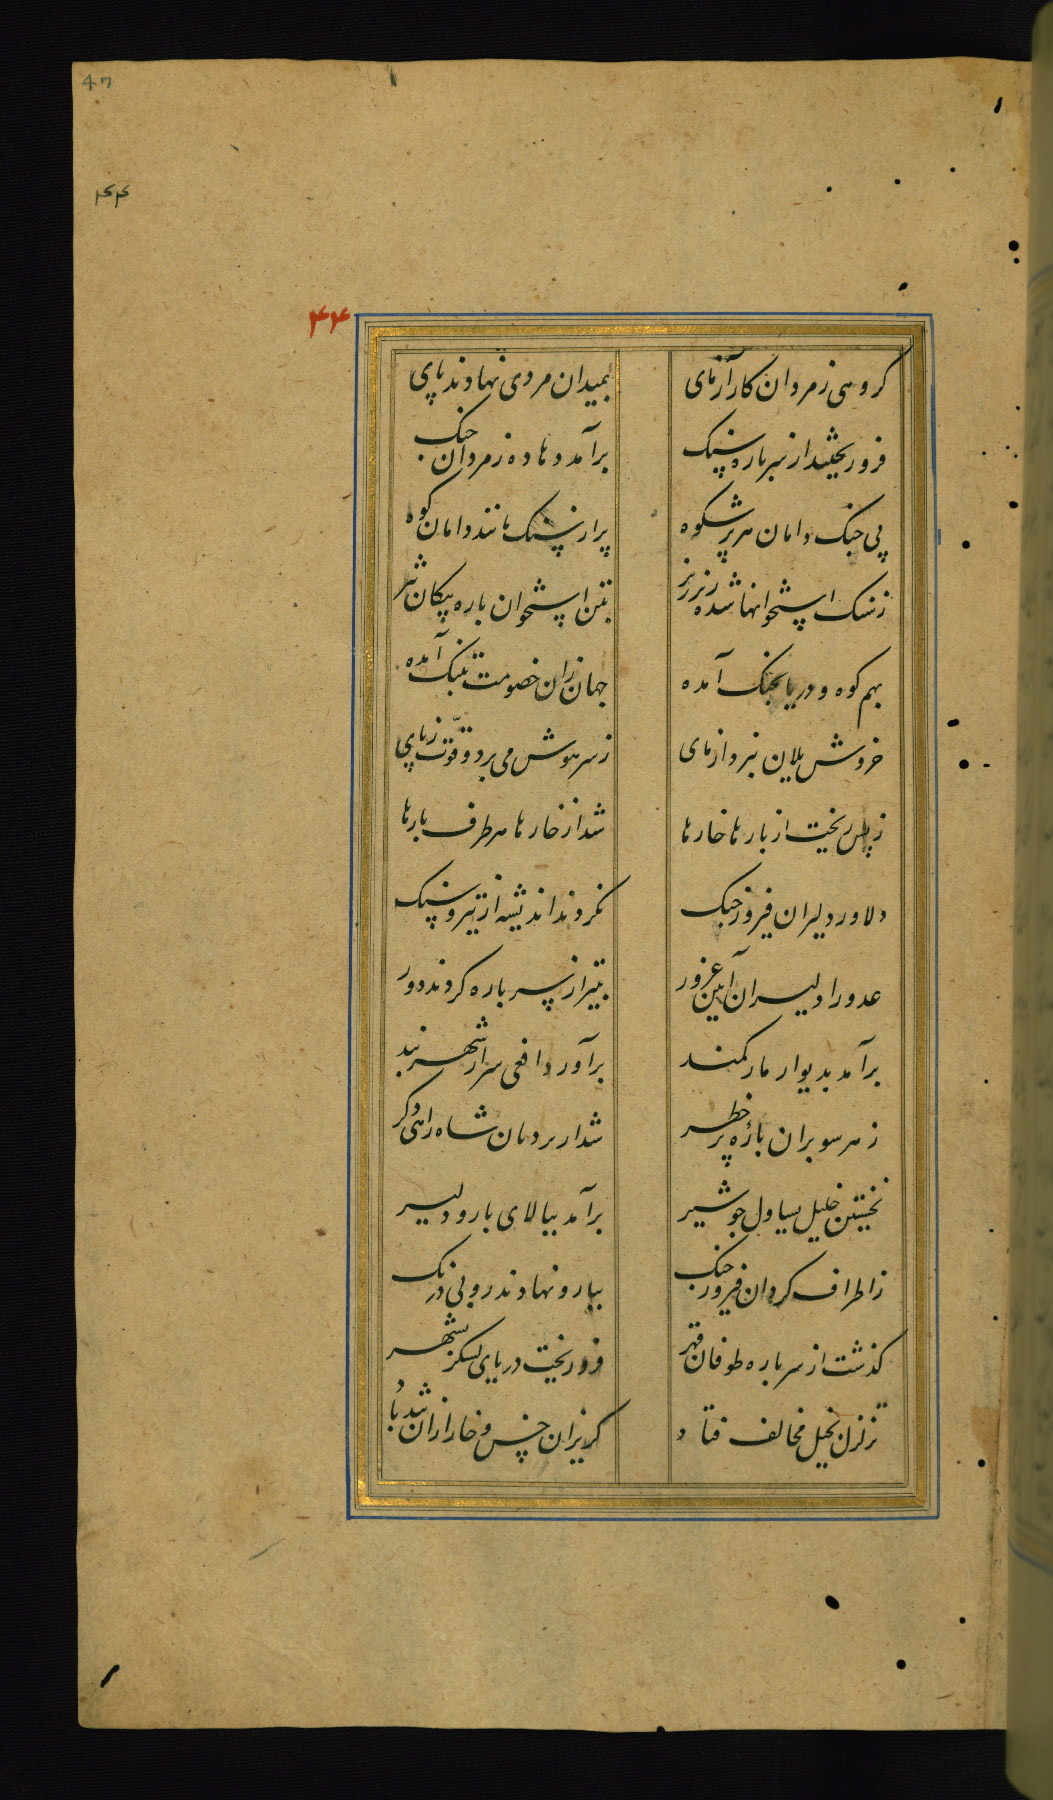 47
۴۴
۴۴
کروهی ز مردان کارآزمای بمیدان مردی نهادند پای
فرو ریختند از سر باره سنک برآمد دماده ز مردان جنک
پی جنک دامان هر پرشکوه پر از سنک مانند دامان کوه
ز سنک استخوانها شده ریز ریز بتن استخوان باره پیکان تیر
بهم کوه و دریا بجنک آمده جهان زان خصومت بتنک آمده
خروش یلان نبردازمای ز سر هوش می برد و قوّت ز پای
ز پس ریخت از بارها خارها شد از خارها هر طرف بارها
دلاور دلیران فیروز جنک نکردند اندیشه از تیر و سنک
عدو را دلیران آیین غرور بتیر از سر باره کردند دور
برآمد بدیوار مار کمند برآورد افعی سر از شهر بند
ز هر سو بران بارهٔ پر خطر شد از نردبان شاه راهی دکر
نخستین خلیل یساول جو شیر برآمد ببالای بارو دلیر
ز اطراف کردان فیروز جنک ببارو نهادند رو بی درنک
کذشت از سر باره طوفان قهر فرو ریخت دریای لشکر بشهر
تزلزل بخیل مخالف فتاد کریزان چو خس و خار ازان تند باد